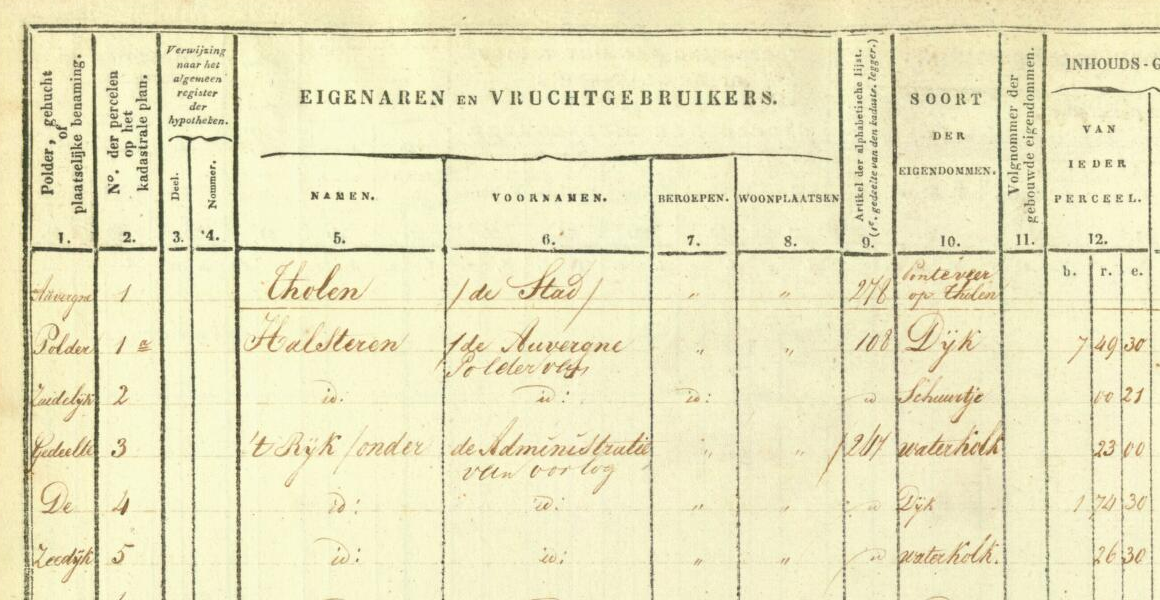 Polder, gehucht of plaatselijke benaming.
N°. der percelen op het kadastrale plan.
Verwijzing
naar het
algemeen
register
der
hypotheken.
Deel.
Nommer.
EIGENAREN EN VRUCHTGEBRUIKERS.
NAMEN.
VOORNAMEN.
BEROEPEN.
WOONPLAATSEN
Artikel der alphabetische lijst.
(1e. gedeelte van den kadastr. legger.)
SOORT
DER
EIGENDOMMEN.
Volgnommer der
gebouwde eigendommen.
INHOUDS-G
VAN
IEDER
PERCEEL.
1. 2. 3. 4. 5. 6. 7. 8. 9. 10. 11. 12.
b. r. e.
Auvergne 1 Tholen /de Stad/ " " 278 Ponteveer
op Tholen
Polder 1 a Halsteren /de Auvergne " " 108 Dÿk 7 49 30
Zuidelÿk 2 id: id: id: id Schuurtje 00 21
Gedeelte 3 't Rÿk /onder de Administratie " " waterkolk 23 00
van oorlog
De 4 id: id: " " id Dÿk 1 74 30
Zeedÿk 5 id: id: " " id waterkolk. 26 30